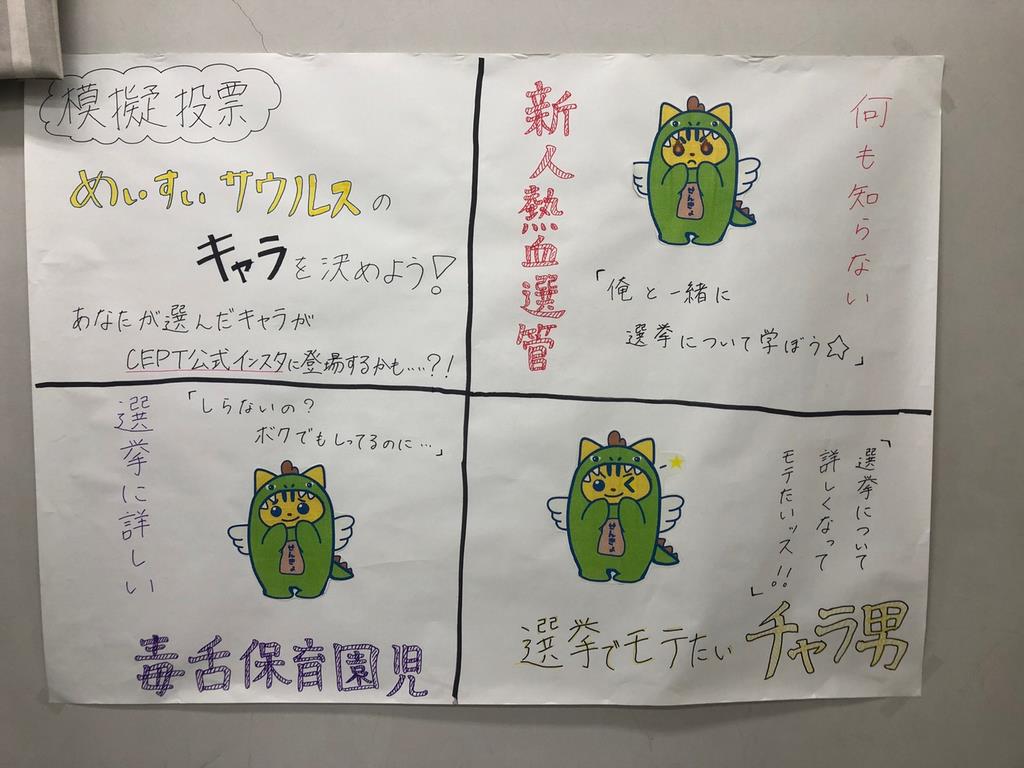 模擬投票
めいすいサウルスの
キャラを決めよう!
あなたが選んだキャラが
CEPT公式インスタに登場するかも…..?!
何も知らない
新人熱血選管
せんきょ
「俺と一緒に
選挙について学ぼう☆」
選挙に詳しい
「しらないの?
ボクでもしってるのに…」
せんきょ
毒舌保育園児
「選挙について
詳しくなって
モテたいッス!!」
せんきょ
選挙でモテたい チャラ男